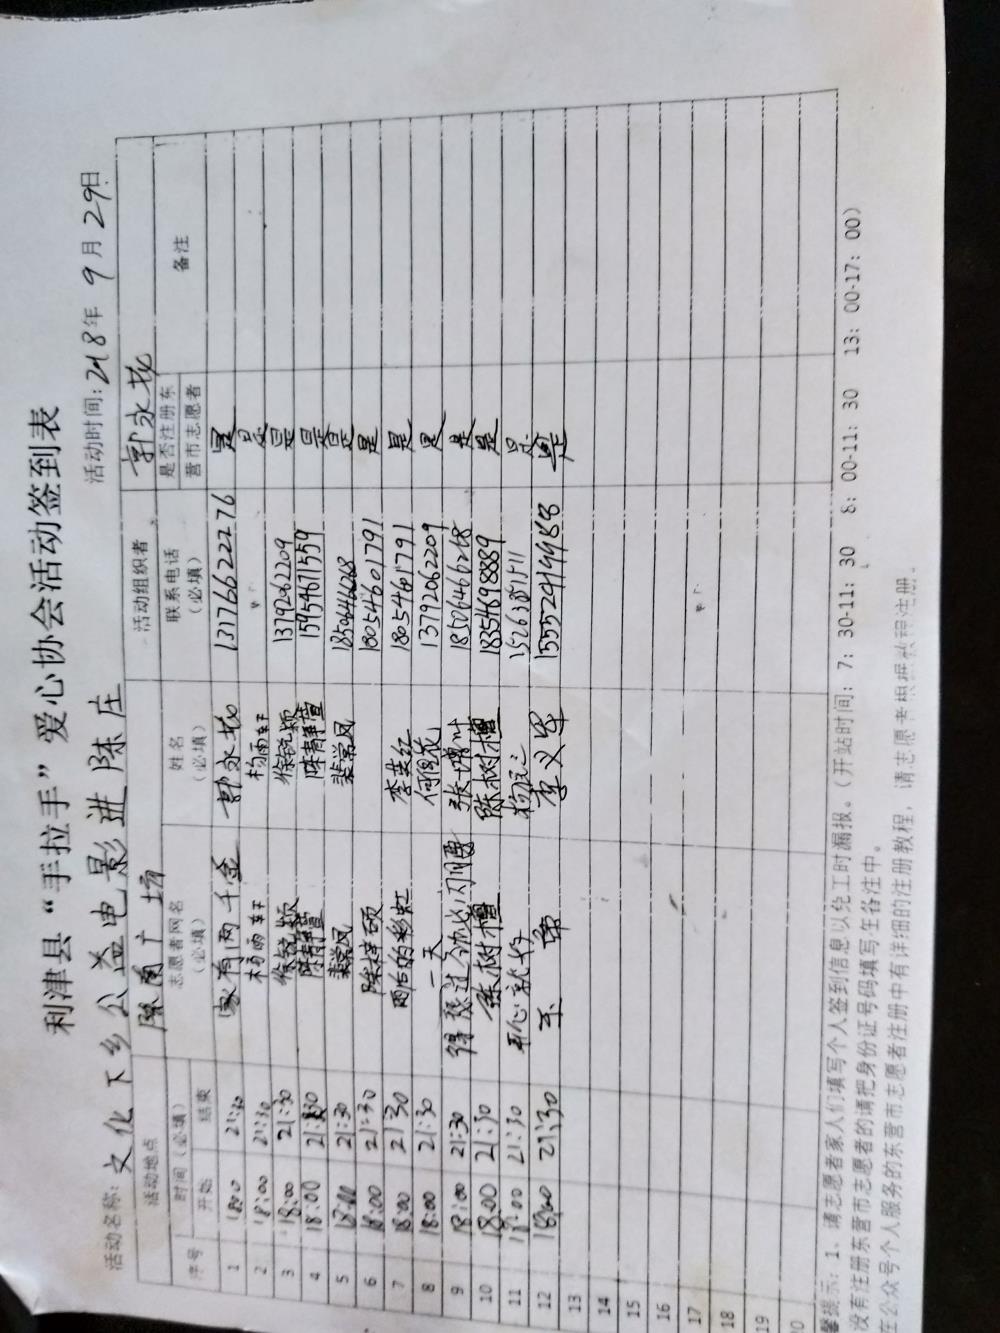 利津县“手拉手”爱心协会活动签到表
活动名称：文化下乡公益电影进陈庄 活动时间：2018年9月29日
活动地点 广场 活动组织者 郭永花
序号 时间（必填） 志愿者网名（必填） 姓名（必填） 联系电话（必填） 是否注册东营市志愿者 备注
开始 结束
1 18:00 21:30 家有两千金 郭永花 13176622276 是
2 18:00 21:30 杨雨轩 杨雨轩 是
3 18:00 21:30 徐锐颖 徐锐颖 13792062209 是
4 18:00 21:30 陈静萱 陈静萱 15954671559 是
5 18:00 21:30 裴常凤 裴常凤 是
6 18:00 21:30 陈梓硕 18054601791 是
7 18:00 21:30 雨后的彩虹 李英红 18054601791 是
8 18:00 21:30 一天 13792062209 是
9 18:00 21:30 张增叶 是
10 18:00 21:30 陈树檀 陈树檀 18354698889 是
11 18:00 21:30 开心就好 是
12 18:00 21:30 李义军 是
13
14
15
16
17
18
19
20
馨提示：1、请志愿者家人们填写个人签到信息以免工时漏报。（开站时间：7：30-11：30 8：00-11：30 13：00-17：00）
没有注册东营市志愿者的请把身份证号码填写在备注中。
在公众号个人服务的东营市志愿者注册中有详细的注册教程，请志愿者根据教程注册。